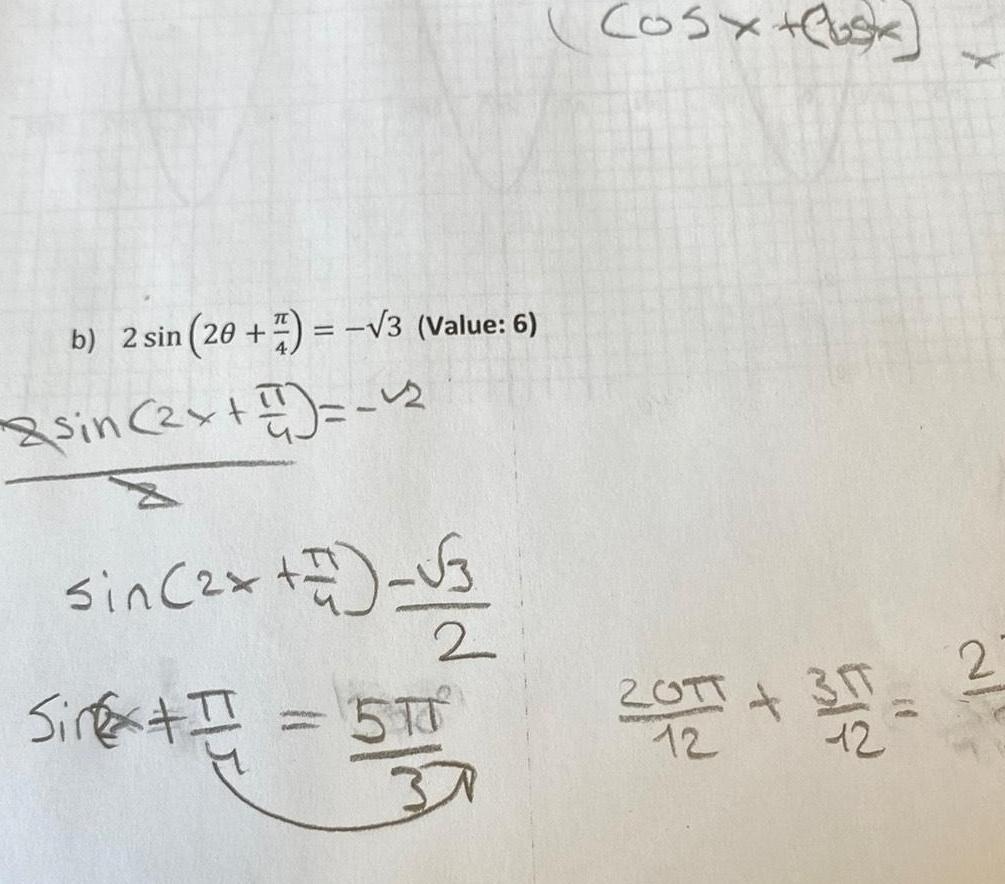 (cosx+cosx) x
b) 2 sin (2θ + π/4) = −√3 (Value: 6)
2sin(2x+π/4)=-√2
2
sin(2x+π/4)-√3/2
sin2x+π/4 = 5π/3
20π/12 + 3π/12 = 2